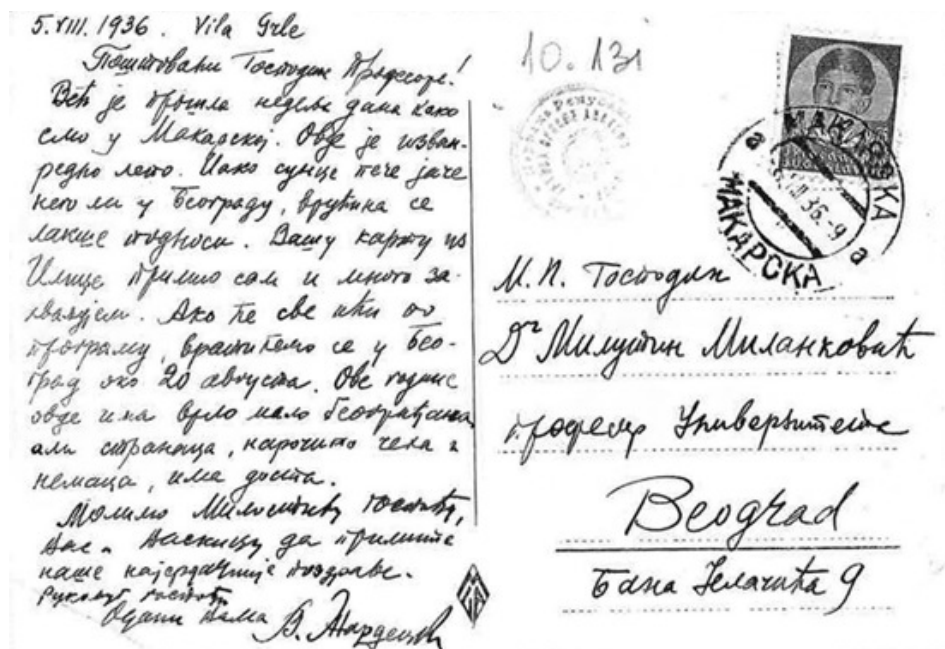 5. VIII. 1936. Vila Grle
Поштовани Господине Професоре!
Већ је прошла недеља дана како
смо у Макарској. Овде је изван-
редно лето. Иако сунце пече јаче
него ли у Београду, врућина се
лакше подноси. Вашу карту из
примио сам и много за-
хваљујем. Ако ће све ићи по
програму, вратићемо се у Бео-
град око 20 августа. Ове године
овде има врло мало београђана,
али странаца, нарочито чеха и
немаца, има доста.
Молимо Милостиву Госпођу,
Вас и Васкицу да примите
наше најсрдачније поздраве.
Рукољуб госпођи
Одани Вама В. Жардецки
10.131
МАКАРСКА
МАКАРСКА
а
а
VIII 36.-9
М.П. Господин
Dr Милутин Миланковић
професор Универзитета
Beograd
Бана Јелачића 9